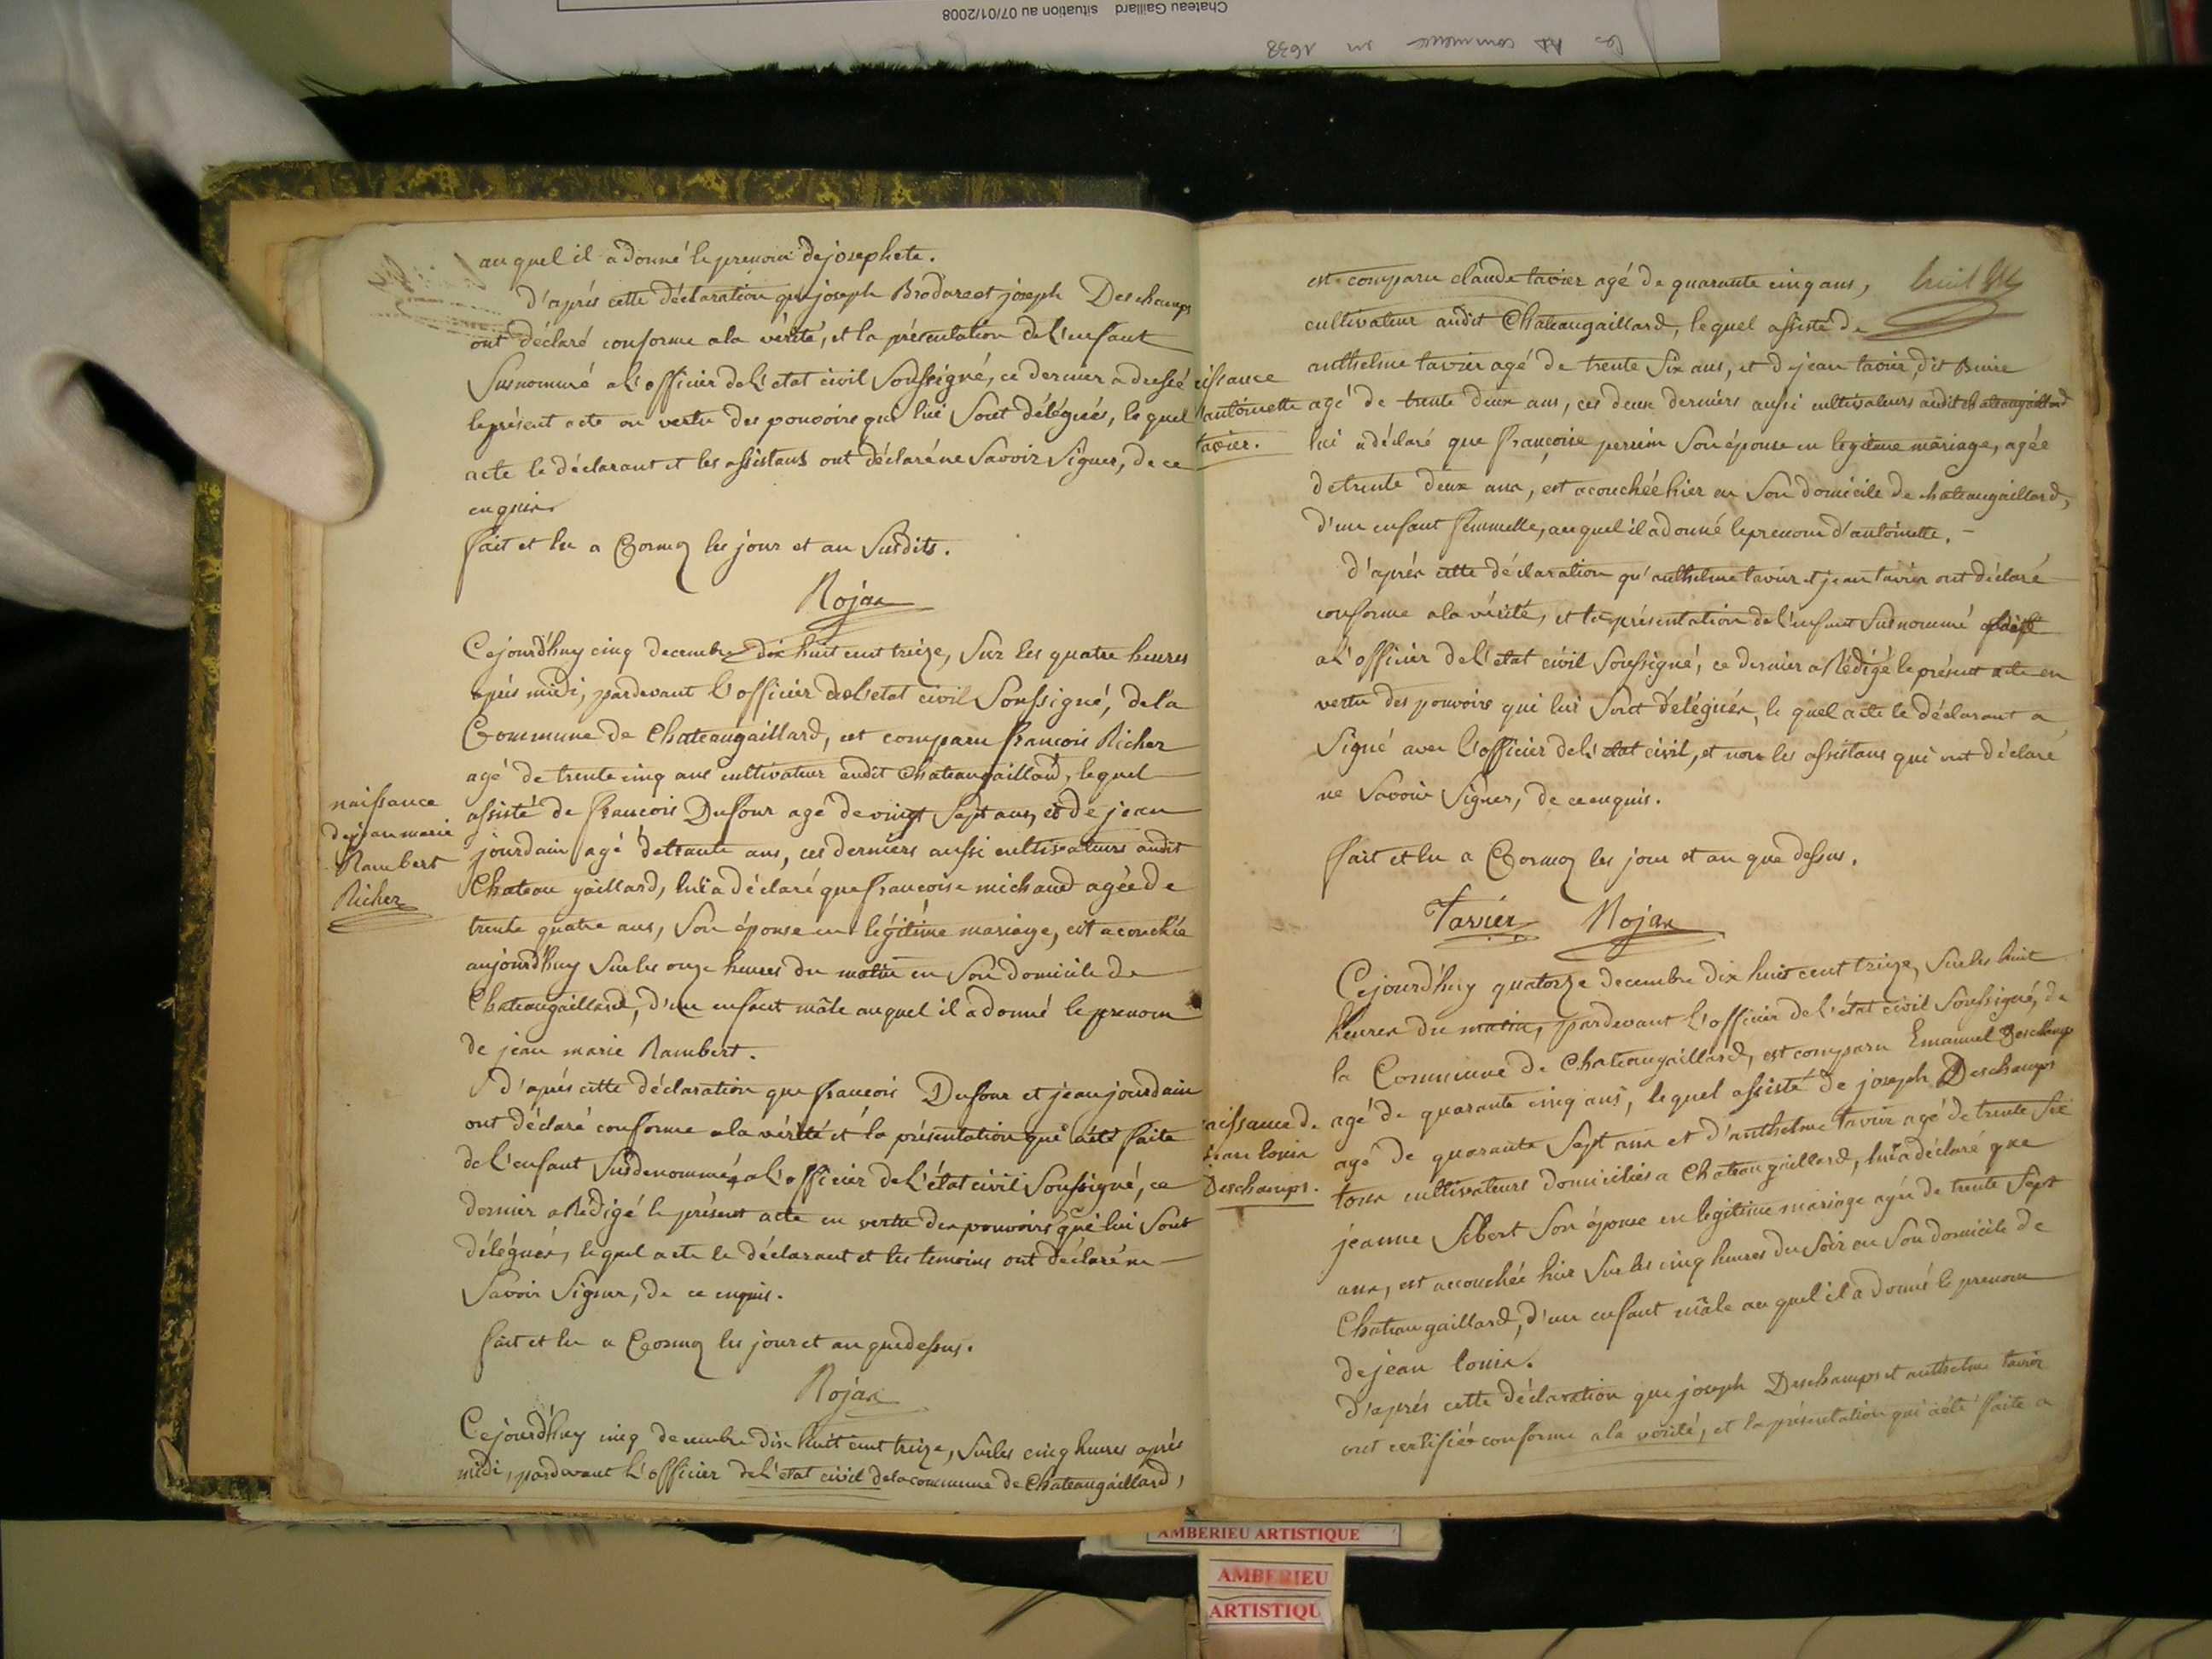 Chateau Gaillard situation au 07/01/2008
en 1638
auquel il a donné le prenom de josephete.
d'après cette déclaration que joseph Brodare et joseph Deschamps
ont déclaré conforme a la vérité, et la présentation de l'enfant
Susnommé a l'officier de l'etat civil Soussigné, ce dernier a dressé
le présent acte en vertu des pouvoirs qui lui Sont délégués, le quel
acte le déclarant et les assistans ont déclaré ne Savoir Signer, de ce
enquis.
fait et lu a Cormoz les jour et an Susdits.
Rojax
Cejourd'huy cinq decembre dix huit cent treize, Sur les quatre heures
après midi, pardevant l'officier de l'etat civil Soussigné, de la
Commune de Chateaugaillard, est comparu francois Richer
agé de trente cinq ans cultivateur audit Chateaugaillard, lequel
assisté de francois Dufour agé de vingt Sept ans, et de jean
jourdain agé de trante ans, ces derniers aussi cultivateurs audit
Chateau gaillard, lui a déclaré que francoise michaud agée de
trente quatre ans, Son épouse en légitime mariage, est acouchée
aujourd'huy Sur les onze heures du matin en Son domicile de
Chateaugaillard, d'un enfant mâle auquel il a donné le prenom
de jean marie Rambert.
naissance
de jean marie
Rambert
Richer
d'après cette déclaration que francois Dufour et jean jourdain
ont déclaré conforme a la vérité et la présentation qui a été faite
de l'enfant Susdenommé, a l'officier de l'état civil Soussigné, ce
dernier a Rédigé le présent acte en vertu des pouvoirs qui lui Sont
délégués, lequel acte le déclarant et les temoins ont déclaré ne
Savoir Signer, de ce enquis.
fait et lu a Cormoz les jour et an que dessus.
Rojax
Cejourd'huy cinq decembre dix huit cent treize, Sur les cinq heures après
midi, pardevant l'officier de l'etat civil de la commune de Chateaugaillard,
est comparu claude tavier agé de quarante cinq ans,
huit
cultivateur audit Chateaugaillard, lequel assisté de
anthelme tavier agé de trente Six ans, et de jean tavier, dit
issance
antoinette
tavier.
agé de trente deux ans, ces deux derniers aussi cultivateurs audit chateaugaillard
lui a déclaré que françoise perrin Son épouse en legitime mariage, agée
de trente deux ans, est acouchée hier en Son domicile de chateaugaillard,
d'un enfant femmelle, auquel il a donné le prenom d'antoinette. -
d'après cette déclaration qu'anthelme tavier et jean tavier ont déclaré
conforme a la vérité, et la présentation de l'enfant Susnommé
a l'officier de l'etat civil Soussigné, ce dernier a Rédigé le présent acte en
vertu des pouvoirs qui lui Sont délégués, le quel acte le déclarant a
Signé avec l'officier de l'etat civil, et non les assistans qui ont déclaré
ne Savoir Signer, de ce enquis.
fait et lu a Cormoz les jour et an que dessus.
Tavier Rojax
Cejourd'huy quatorze decembre dix huit cent treize, Sur les huit
heures du matin, pardevant l'officier de l'état civil Soussigné, de
la Commune de Chateaugaillard, est comparu Emanuel Deschamp
agé de quarante cinq ans, lequel assisté de joseph Deschamps
agé de quarante Sept ans et d'anthelme tavier agé de trente Six
tous cultivateurs domiciliés a Chateaugaillard, lui a déclaré que
jeanne Sibert Son épouse en legitime mariage agée de trente Sept
ans, est accouchée hier Sur les cinq heures du Soir en Son domicile de
Chateaugaillard, d'un enfant mâle auquel il a donné le prenom
de jean louis.
aissance de
jean louis
Deschamps.
d'après cette déclaration que joseph Deschamps et anthelme tavier
ont certifiée conforme a la vérité, et la présentation qui a été faite a
AMBERIEU ARTISTIQUE
AMBERIEU
ARTISTIQU